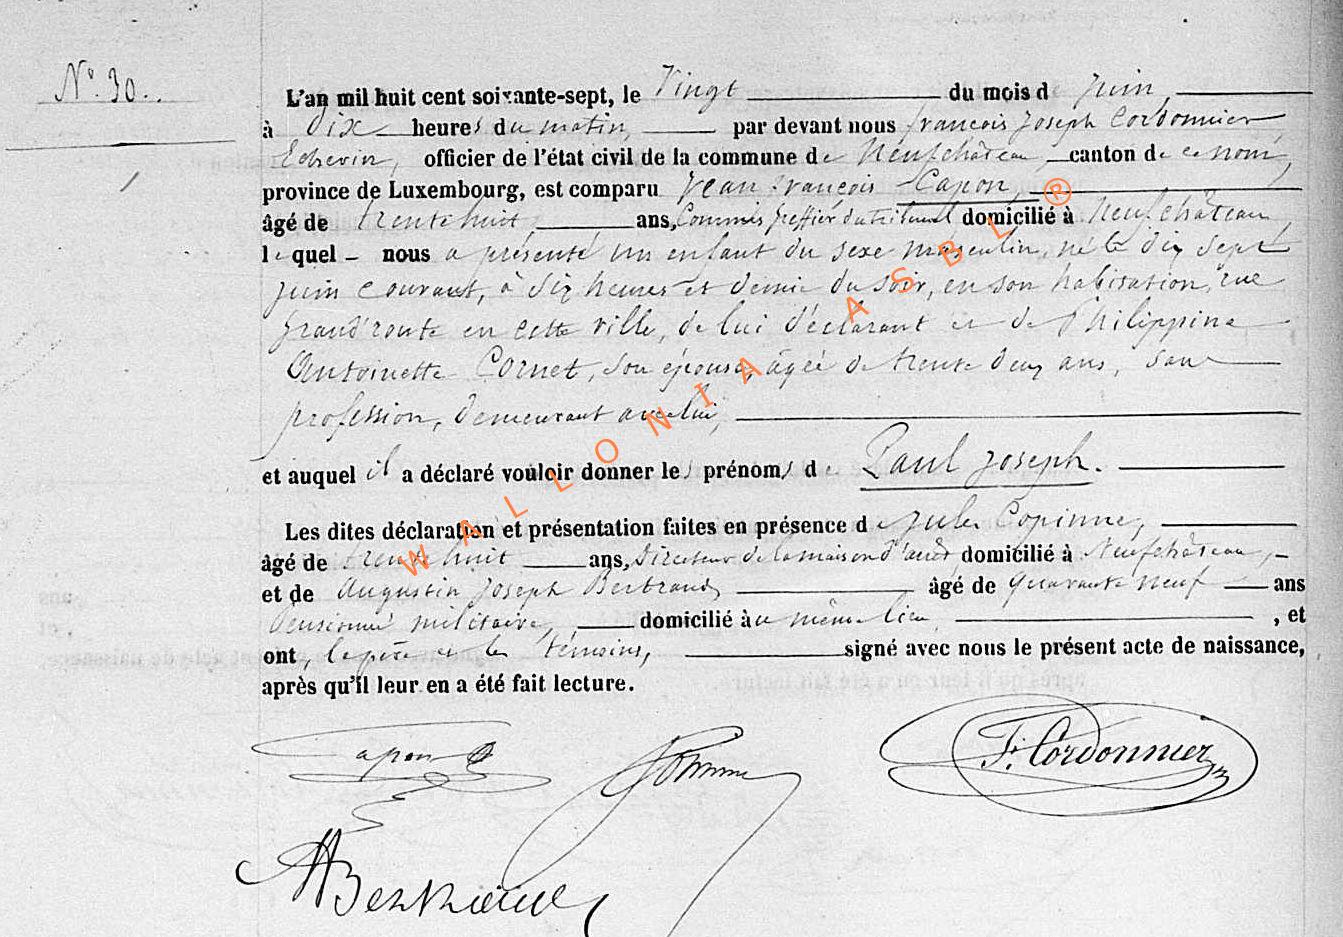 N° 30.
L'an mil huit cent soixante-sept, le Vingt du mois d Juin,
à Dix heures du matin, par devant nous françois Joseph Cordonnier,
Echevin, officier de l'état civil de la commune de Neufchâteau, canton de ce nom,
province de Luxembourg, est comparu Jean françois Capon,
âgé de trente huit, ans, Commis greffier du tribunal domicilié à Neufchâteau
lequel nous a présenté un enfant du sexe masculin, né le dix sept
juin courant, à dix heures et demie du soir, en son habitation, rue
grand'route en cette ville, de lui déclarant et de Philippine
Antoinette Cornet, son épouse, âgée de trente deux ans, sans
profession, demeurant avec lui,
et auquel il a déclaré vouloir donner les prénoms de Paul Joseph.
Les dites déclaration et présentation faites en présence de Jules Copinne,
âgé de trente huit ans, Directeur de la maison d'arrêt, domicilié à Neufchâteau,
et de Augustin Joseph Bertrand âgé de quarante neuf ans
pensionné militaire, domicilié au même lieu, , et
ont, le père et les témoins, signé avec nous le présent acte de naissance,
après qu'il leur en a été fait lecture.
Capon
F. Cordonnier
ABertrand
WALLONIA ASBL ®